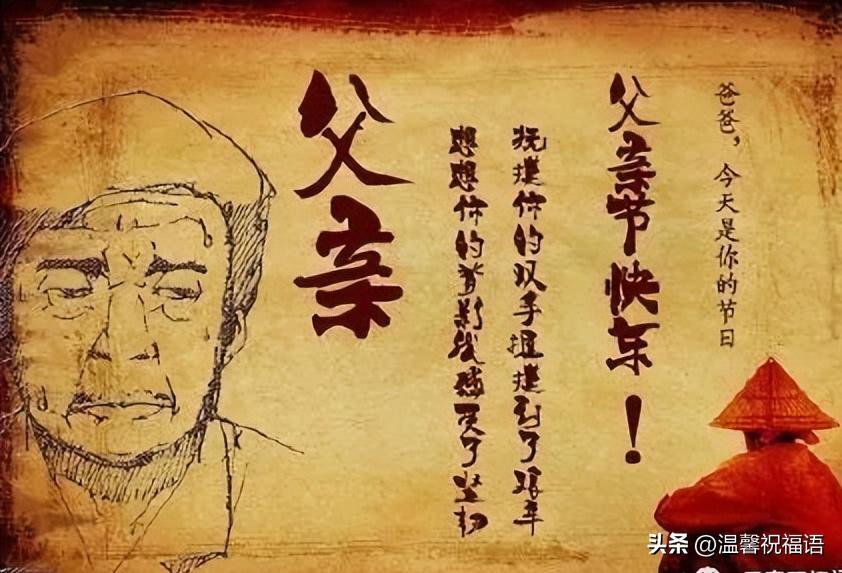 爸爸，今天是你的节日
父亲节快乐！
抚摸你的双手摸到了艰辛
想想你的背影感受了坚韧
父亲
头条 @温馨祝福语